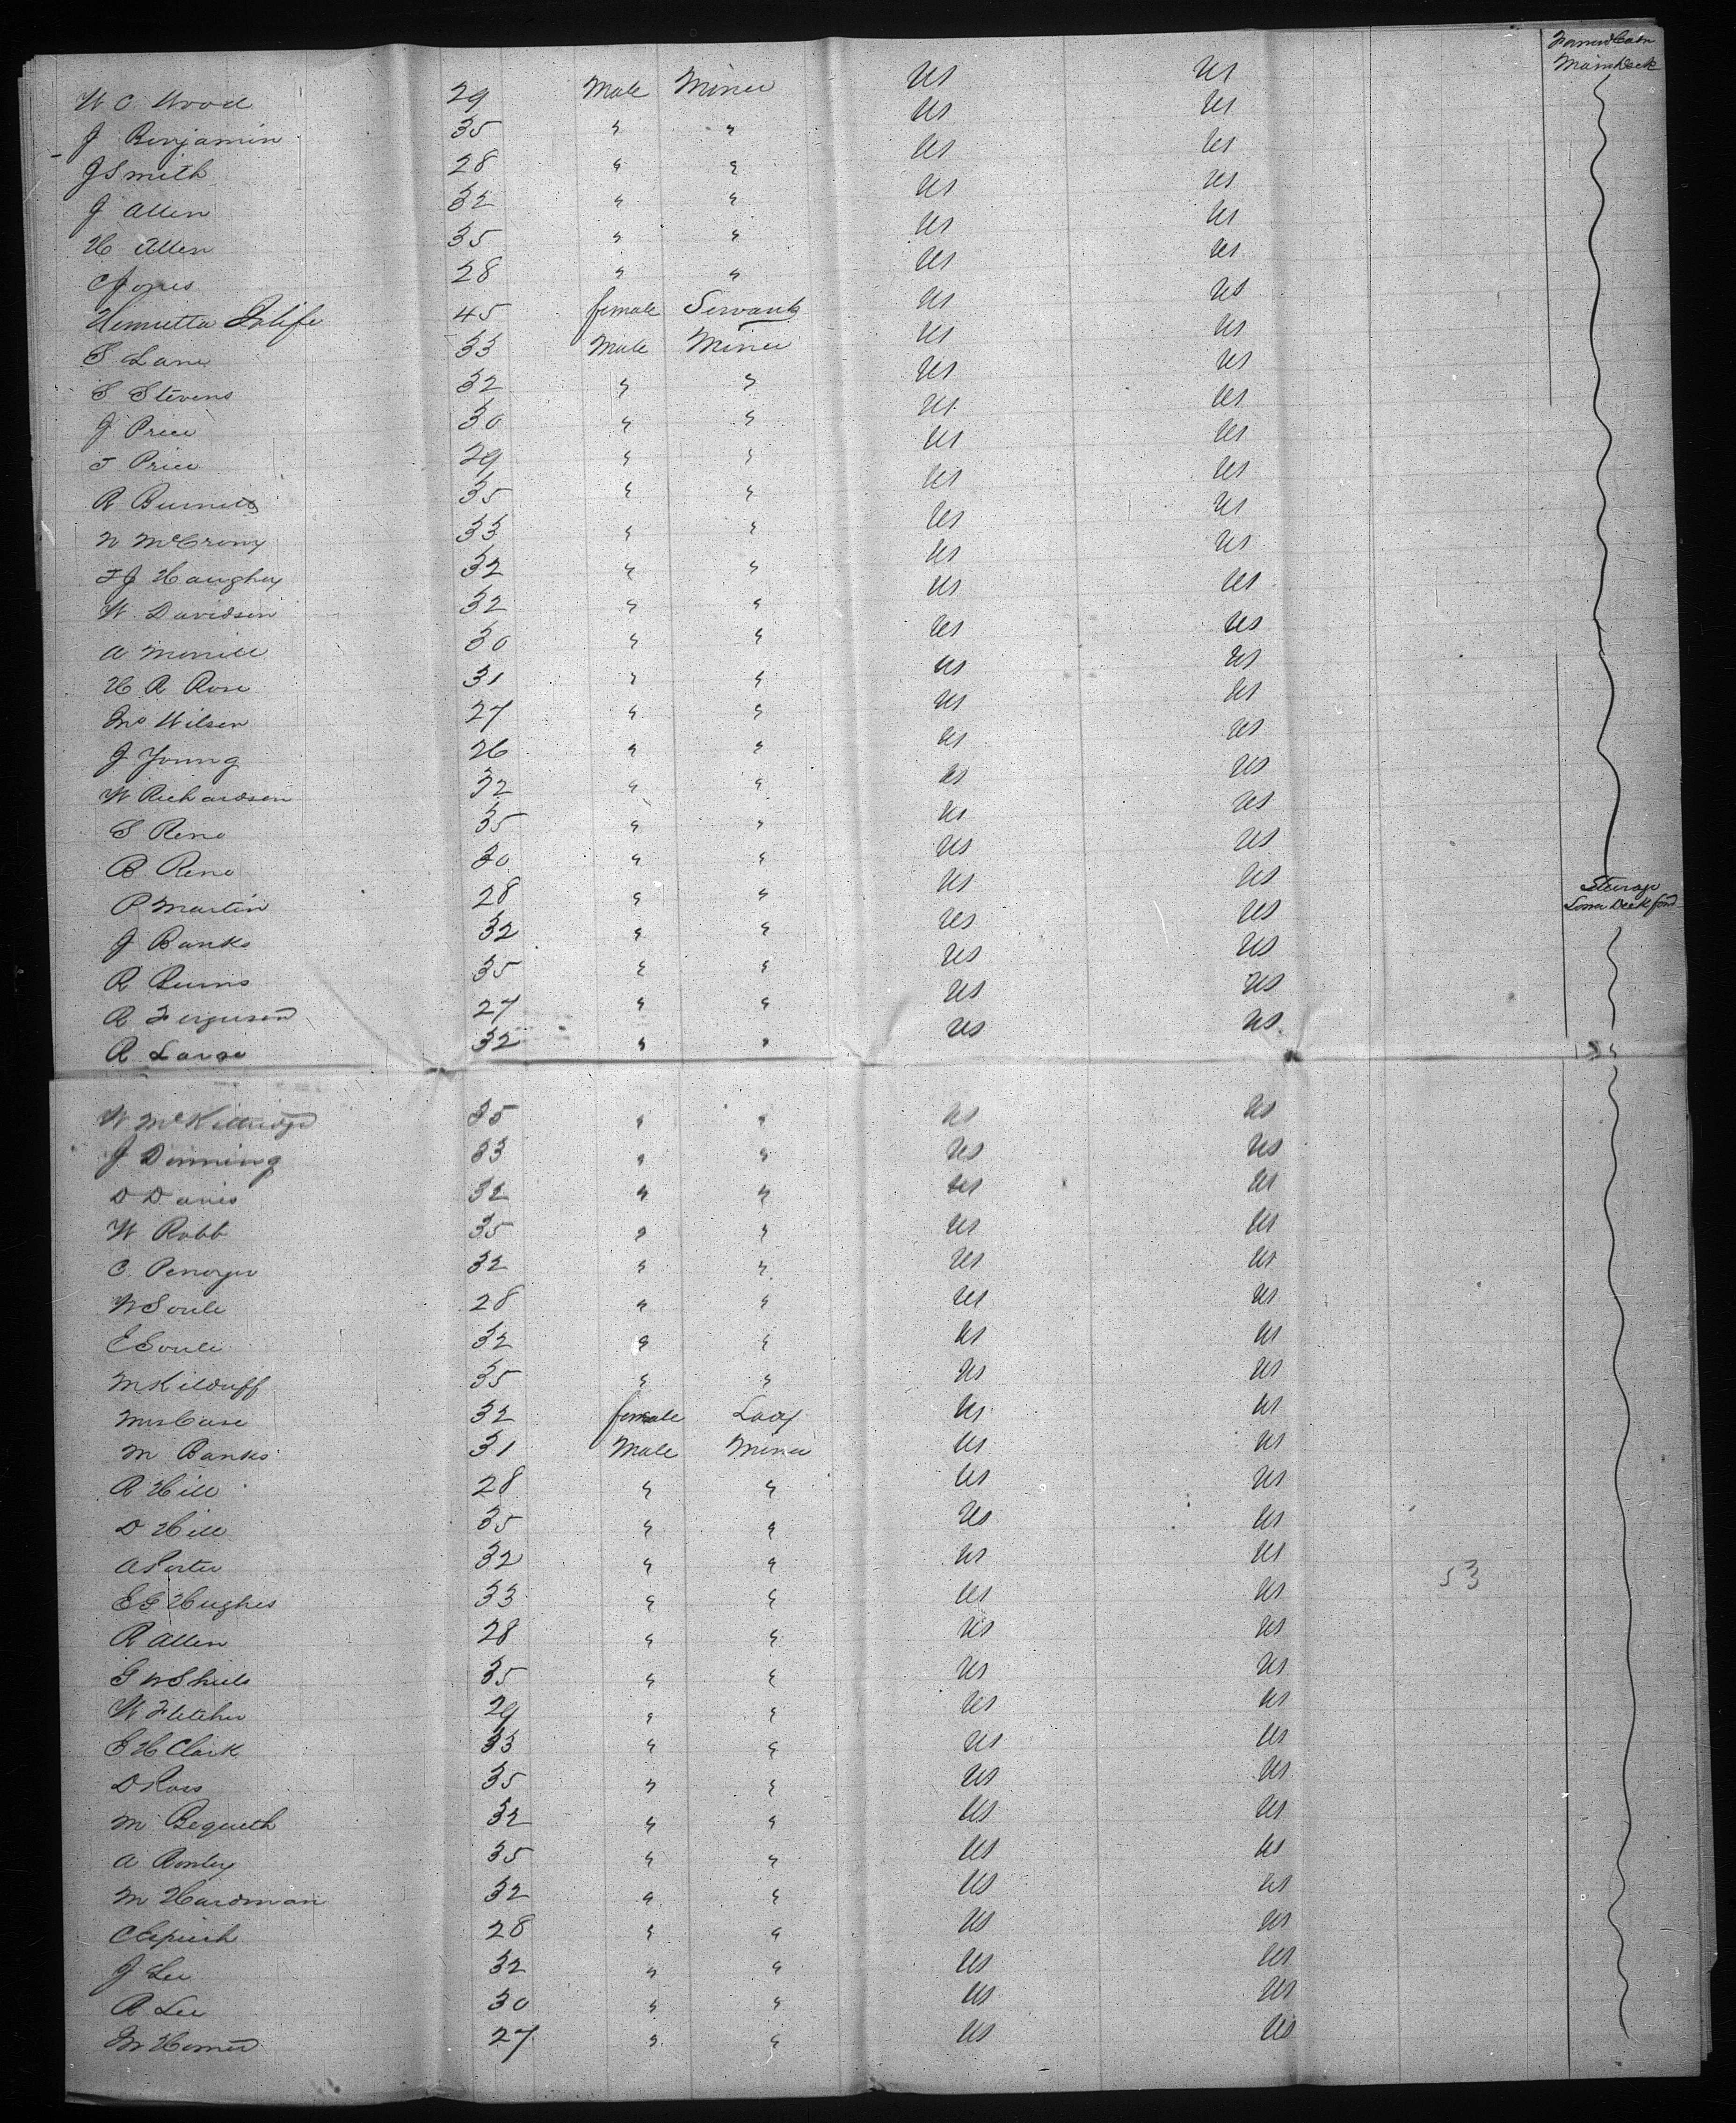 Forward Cabin
Main Deck
W C Wood 29 Male Miner US US
J Benjamin 35 " " US US
J Smith 28 " " US US
J Allen 32 " " US US
H Allen 35 " " US US
C Jones 28 " " US US
Henrietta 45 female Servant US US
S Lane 33 Male Miner US US
S Stevens 32 " " US US
J Price 30 " " US US
T Price 29 " " US US
R Burnett 35 " " US US
N McCrony 33 " " US US
T J Haughey 32 " " US US
W. Davidson 32 " " US US
A Merrill 30 " " US US
H R Rose 31 " " US US
Jno Wilson 27 " " US US
J Young 26 " " US US
W Richardson 32 " " US US
S Reno 35 " " US US
B Reno 30 " " US US
Steerage
Lower Deck ford
P Martin 28 " " US US
J Banks 32 " " US US
R Burns 35 " " US US
R Ferguson 27 " " US US
R Large 32 " " US US
W McKittridge 35 " " US US
J Dinning 33 " " US US
D Davis 32 " " US US
W Robb 35 " " US US
C. Penoyer 32 " " US US
W Soule 28 " " US US
E Soule 32 " " US US
M Kilduff 35 " " US US
Mrs Case 32 female Lady US US
M Banks 31 Male Miner US US
R Hill 28 " " US US
D Hill 35 " " US US
A Porter 32 " " US US
53
E G Hughes 33 " " US US
R Allen 28 " " US US
G W Shiels 35 " " US US
W Fletcher 29 " " US US
S H Clark 33 " " US US
D Ross 35 " " US US
M Bequeth 32 " " US US
A Rowley 35 " " US US
M Hardman 32 " " US US
C 28 " " US US
J Lee 32 " " US US
R Lee 30 " " US US
27 " " US US